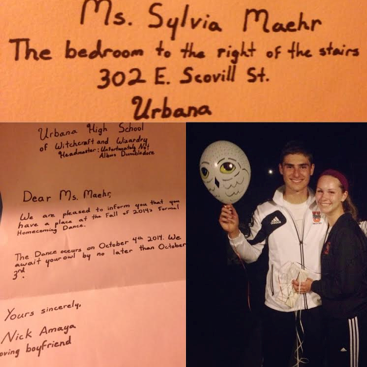 Ms. Sylvia Maehr
The bedroom to the right of the stairs
302 E. Scovill St.
Urbana
Urbana High School
of Witchcraft and Wizardry
Headmaster: Unfortunately Not
Albus Dumbledore
Dear Ms. Maehr,
We are pleased to inform you that you
have a place at the Fall of 2014s Formal
Homecoming Dance.
The Dance occurs on October 4th 2014. We
await your owl by no later than October
3rd.
Yours sincerely,
Nick Amaya
loving boyfriend